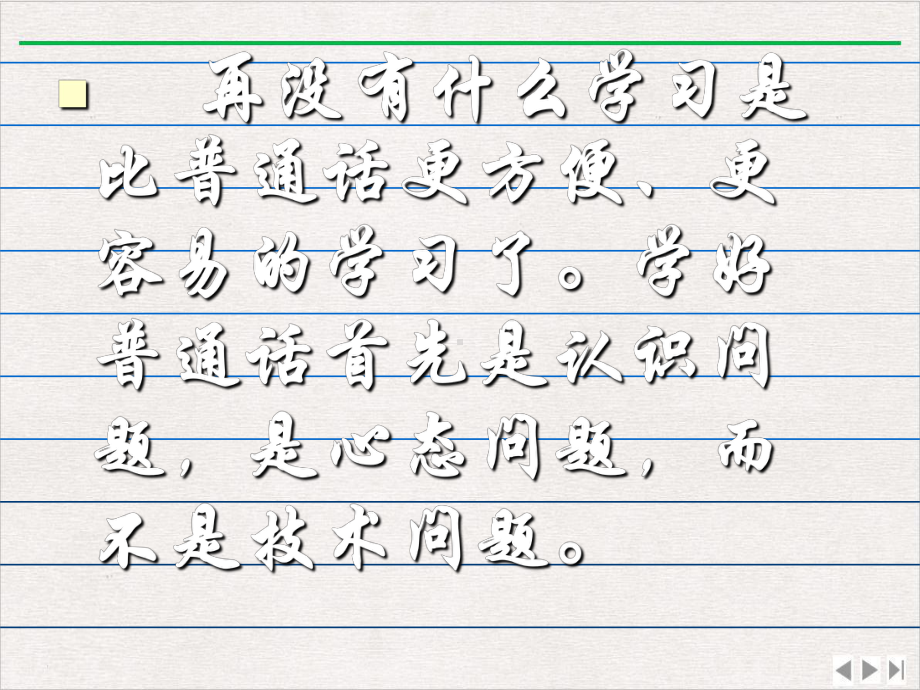 再没有什么学习是
比普通话更方便、更
容易的学习了。学好
普通话首先是认识问
题，是心态问题，而
不是技术问题。